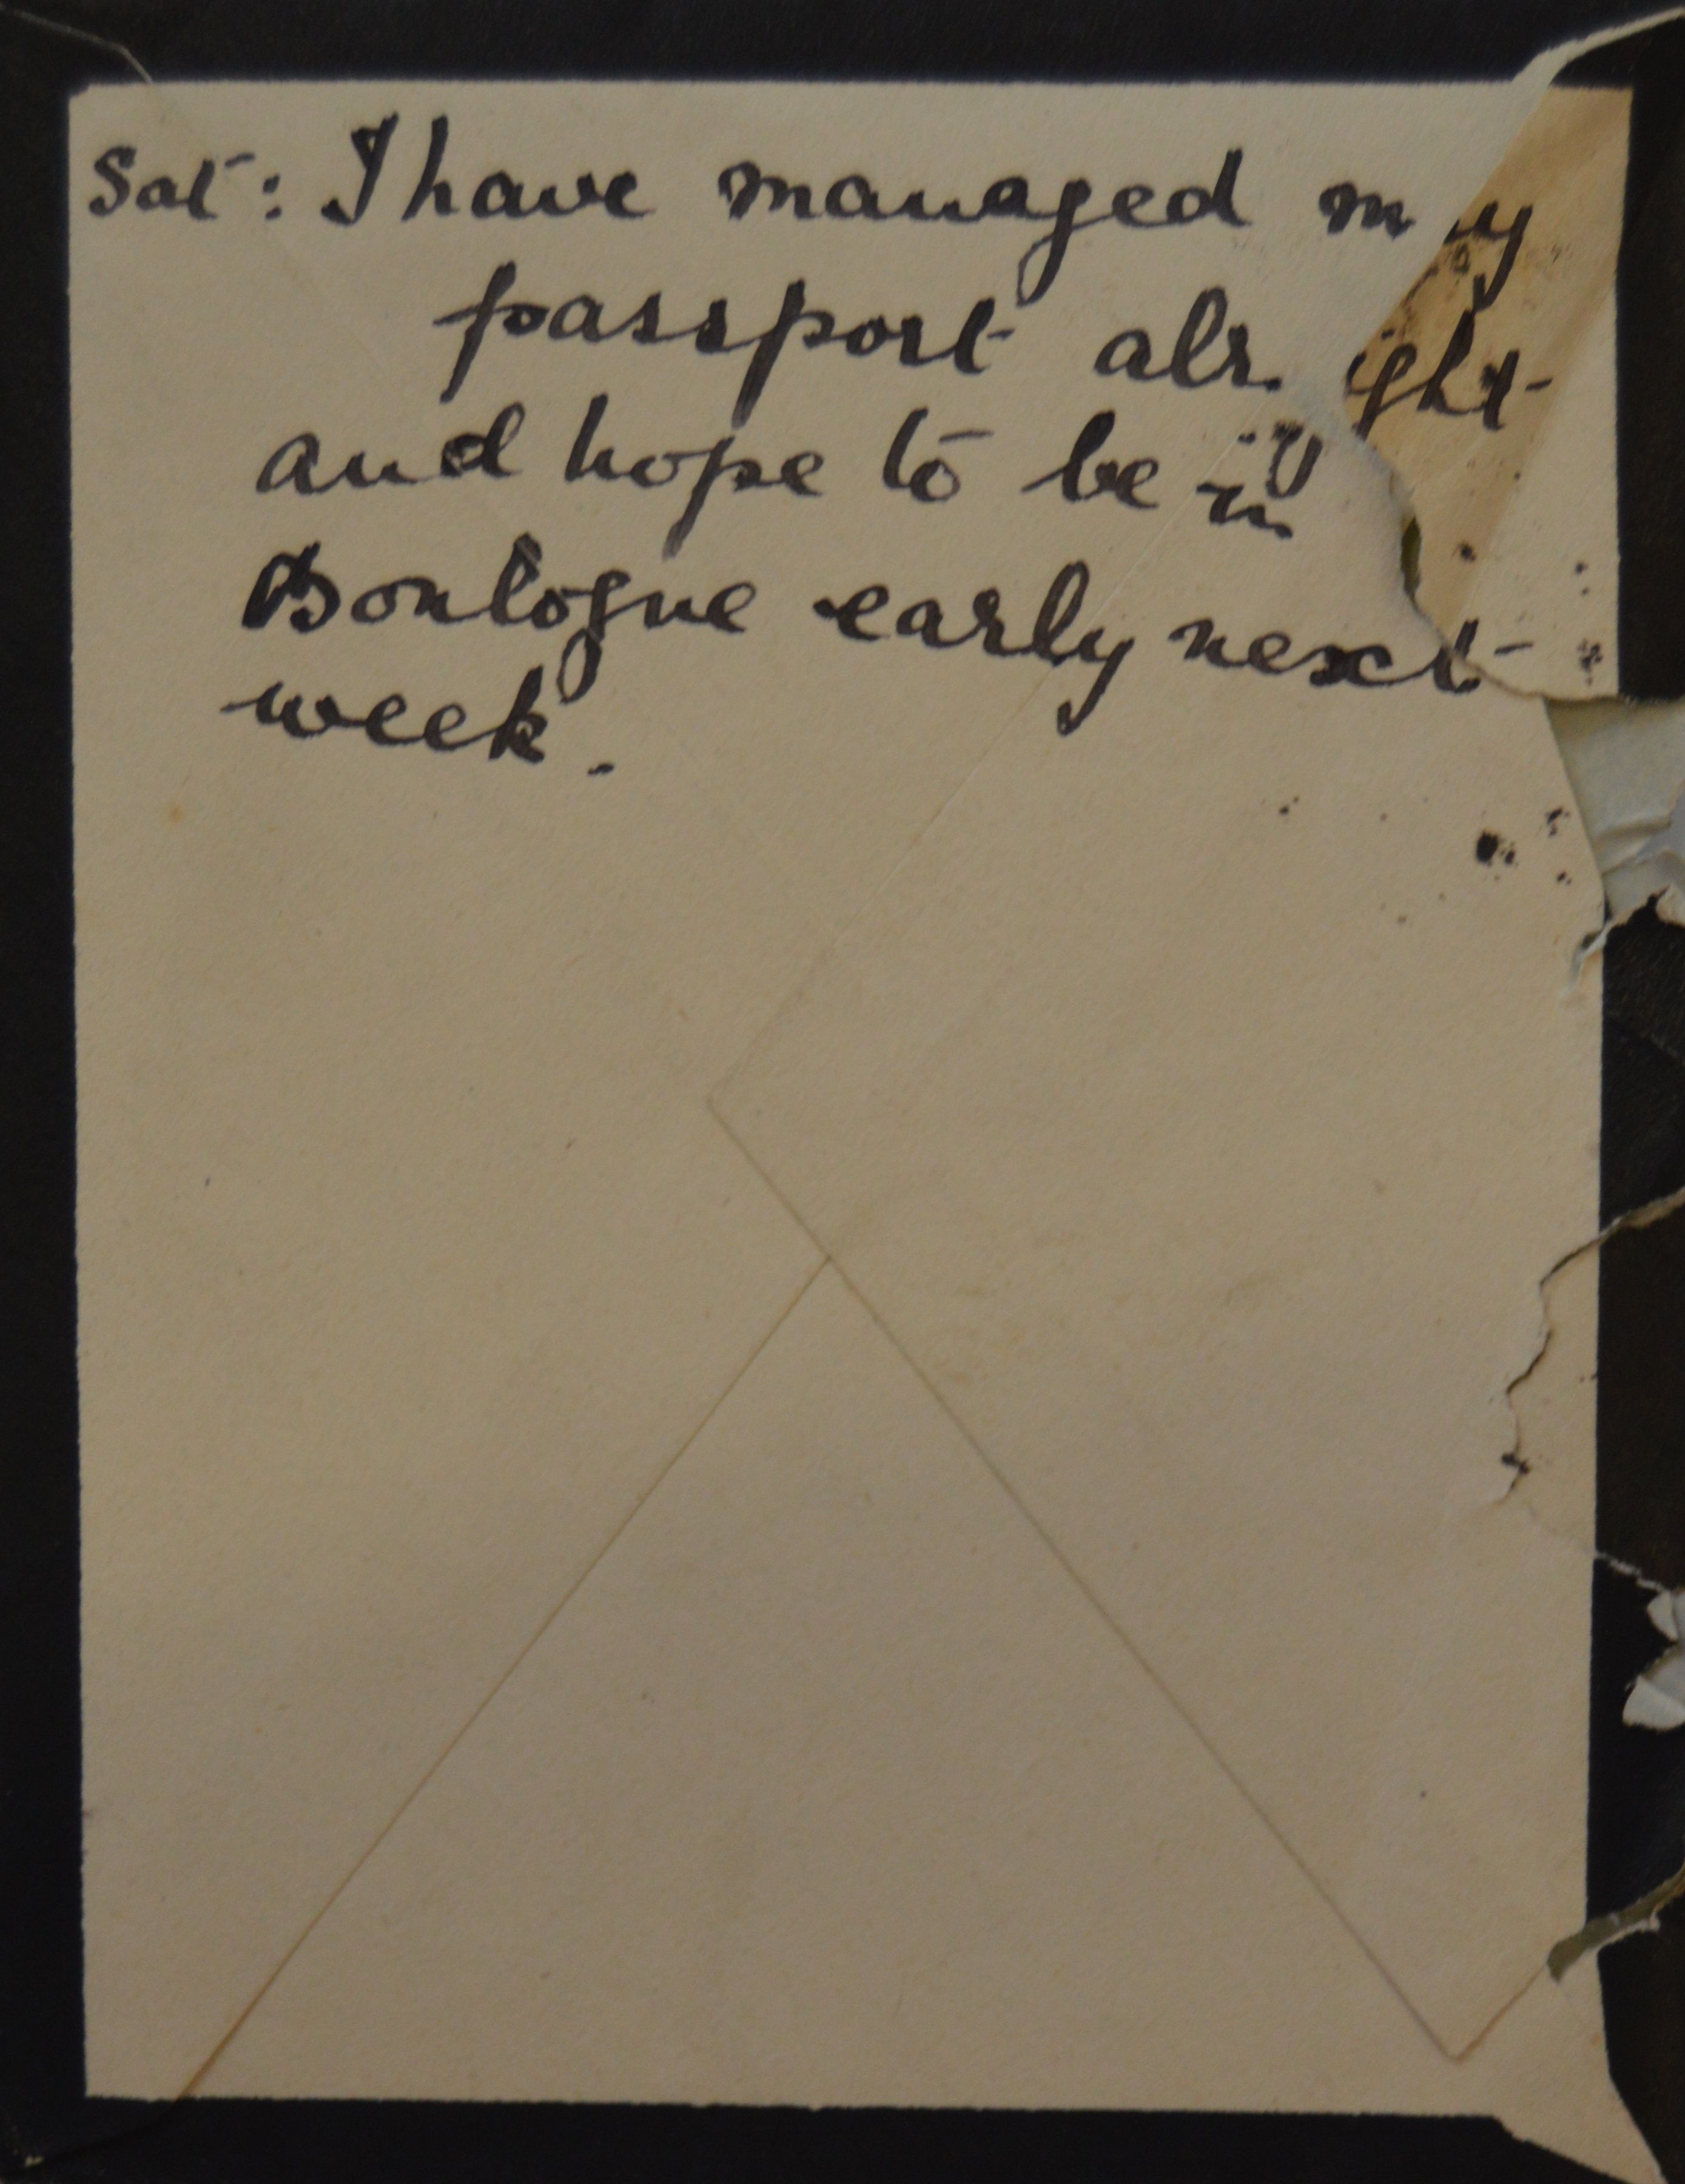 Sat: I have managed my
passport alright
and hope to be in
Boulogne early next
week.